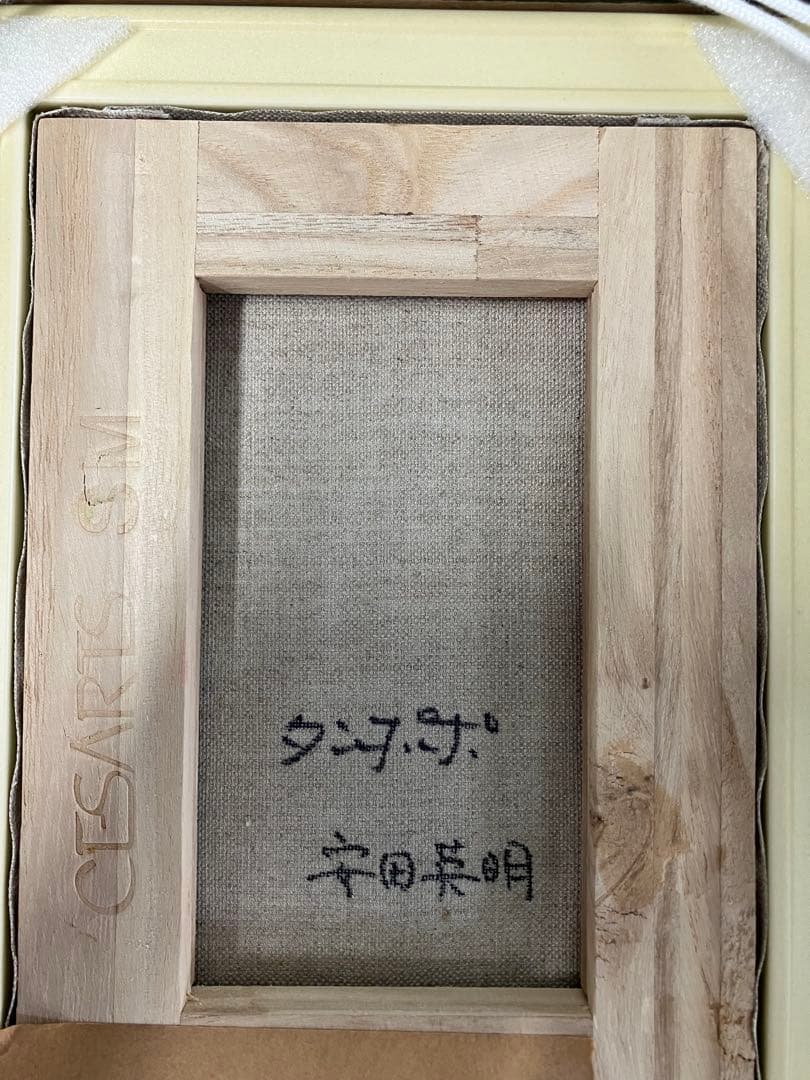 CESARTS SM
タンポポ
安田英明